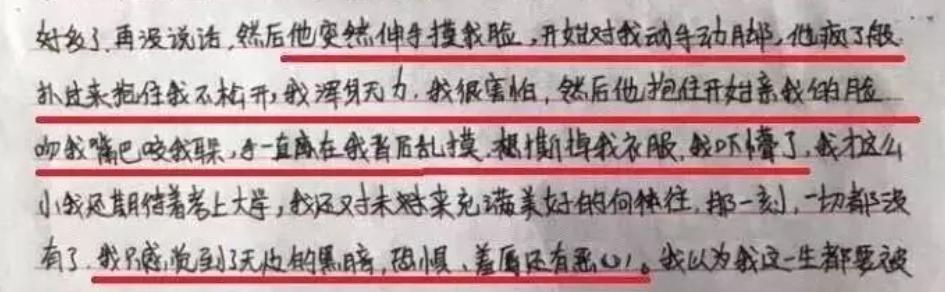 好多了，再没说话，然后他突然伸手摸我脸，开始对我动手动脚，他疯了般
扑过来抱住我不松开，我浑身无力，我很害怕，然后他抱住开始亲我的脸
吻我嘴巴咬我耳朵，手一直在我背后乱摸，想撕掉我衣服，我吓懵了，我才这么
小我还期待着考上大学，我还对未来充满美好的向往，那一刻，一切都没
有了，我只感觉到了无边的黑暗，恐惧、羞辱还有恶心。我以为我这一生都要被